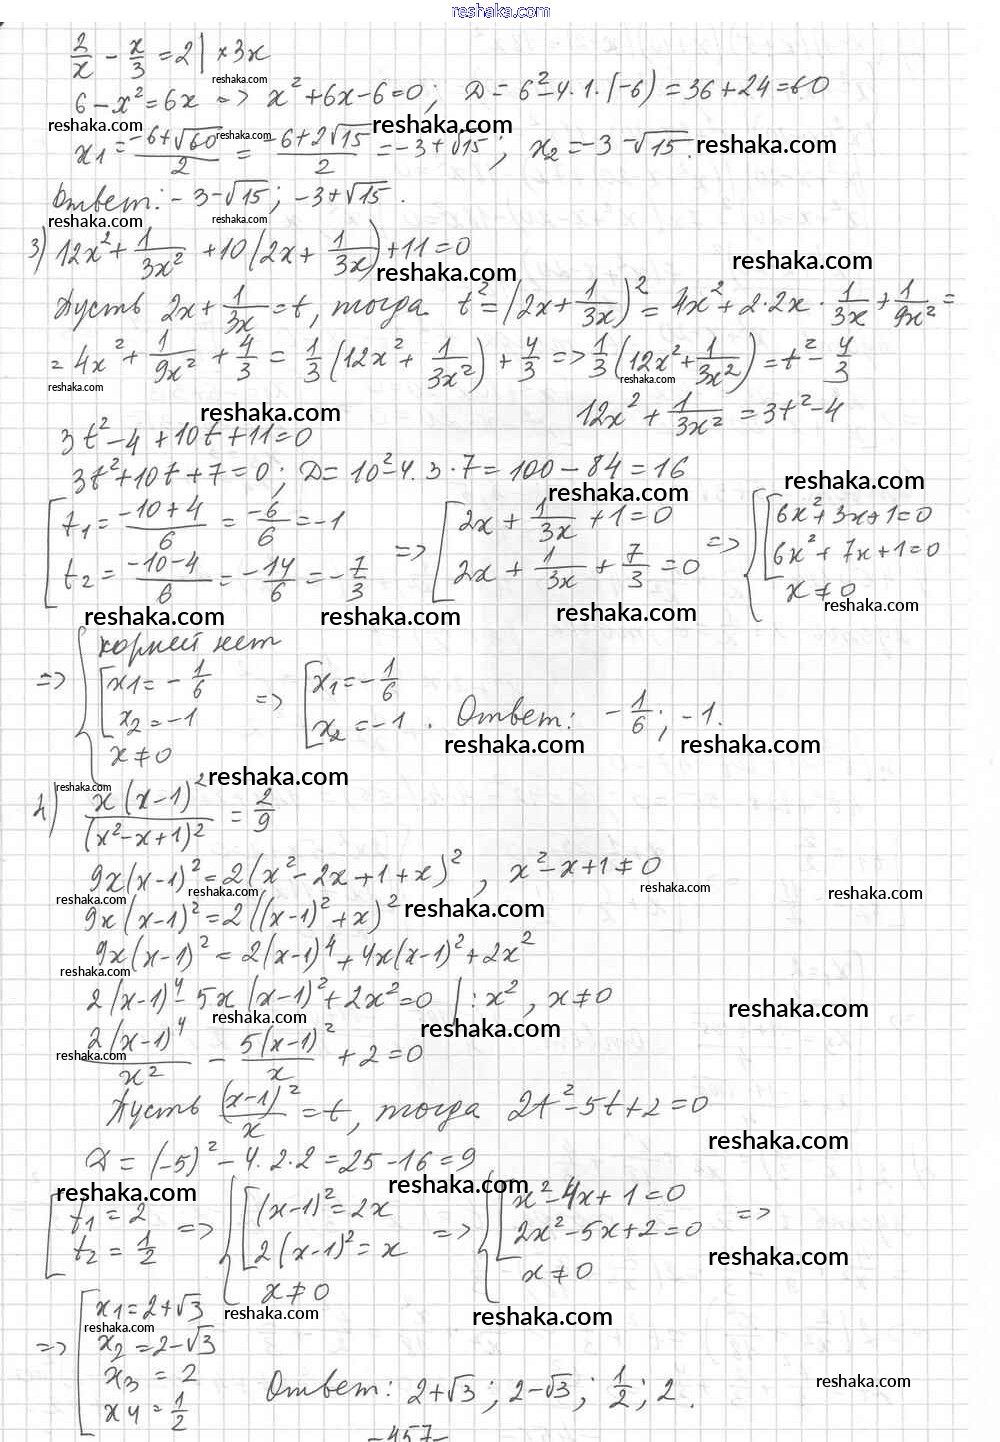 reshaka.com
2/x - x/3 = 2 | ×3x
reshaka.com
6 - x² = 6x => x² + 6x - 6 = 0; D = 6² - 4·1·(-6) = 36 + 24 = 60
reshaka.com reshaka.com reshaka.com
x1 = (-6+√60)/2 = (-6+2√15)/2 = -3+√15; x2 = -3-√15. reshaka.com
Ответ: -3-√15; -3+√15.
reshaka.com reshaka.com
3) 12x² + 1/(3x²) + 10(2x + 1/(3x)) + 11 = 0
reshaka.com reshaka.com
Пусть 2x + 1/(3x) = t, тогда t² = (2x + 1/(3x))² = 4x² + 2·2x · 1/(3x) + 1/(9x²) =
= 4x² + 1/(9x²) + 4/3 = 1/3 (12x² + 1/(3x²)) + 4/3 => 1/3 (12x² + 1/(3x²)) = t² - 4/3
reshaka.com reshaka.com
reshaka.com 12x² + 1/(3x²) = 3t² - 4
3t² - 4 + 10t + 11 = 0
3t² + 10t + 7 = 0; D = 10² - 4·3·7 = 100 - 84 = 16
reshaka.com reshaka.com
[ t1 = (-10+4)/6 = -6/6 = -1 => [ 2x + 1/(3x) + 1 = 0 => { [ 6x² + 3x + 1 = 0
t2 = (-10-4)/6 = -14/6 = -7/3 2x + 1/(3x) + 7/3 = 0 6x² + 7x + 1 = 0
x ≠ 0
reshaka.com reshaka.com reshaka.com reshaka.com
=> { [ корней нет
[ x1 = -1/6 => [ x1 = -1/6
x2 = -1 x2 = -1 . Ответ: -1/6; -1.
x ≠ 0
reshaka.com reshaka.com
reshaka.com reshaka.com
4) x(x-1)²/(x²-x+1)² = 2/9
9x(x-1)² = 2(x² - 2x + 1 + x)², x² - x + 1 ≠ 0
reshaka.com reshaka.com reshaka.com reshaka.com
9x(x-1)² = 2((x-1)² + x)² reshaka.com
9x(x-1)² = 2(x-1)⁴ + 4x(x-1)² + 2x²
reshaka.com
2(x-1)⁴ - 5x(x-1)² + 2x² = 0 | : x², x ≠ 0
reshaka.com reshaka.com reshaka.com
2(x-1)⁴/x² - 5(x-1)²/x + 2 = 0
reshaka.com
Пусть (x-1)²/x = t, тогда 2t² - 5t + 2 = 0
reshaka.com
D = (-5)² - 4·2·2 = 25 - 16 = 9
reshaka.com reshaka.com
[ t1 = 2 => { [ (x-1)² = 2x => { [ x² - 4x + 1 = 0 =>
t2 = 1/2 2(x-1)² = x 2x² - 5x + 2 = 0
x ≠ 0 x ≠ 0
reshaka.com
reshaka.com reshaka.com
=> [ x1 = 2+√3
reshaka.com
x2 = 2-√3
x3 = 2
x4 = 1/2 Ответ: 2+√3; 2-√3; 1/2; 2.
reshaka.com
-457-